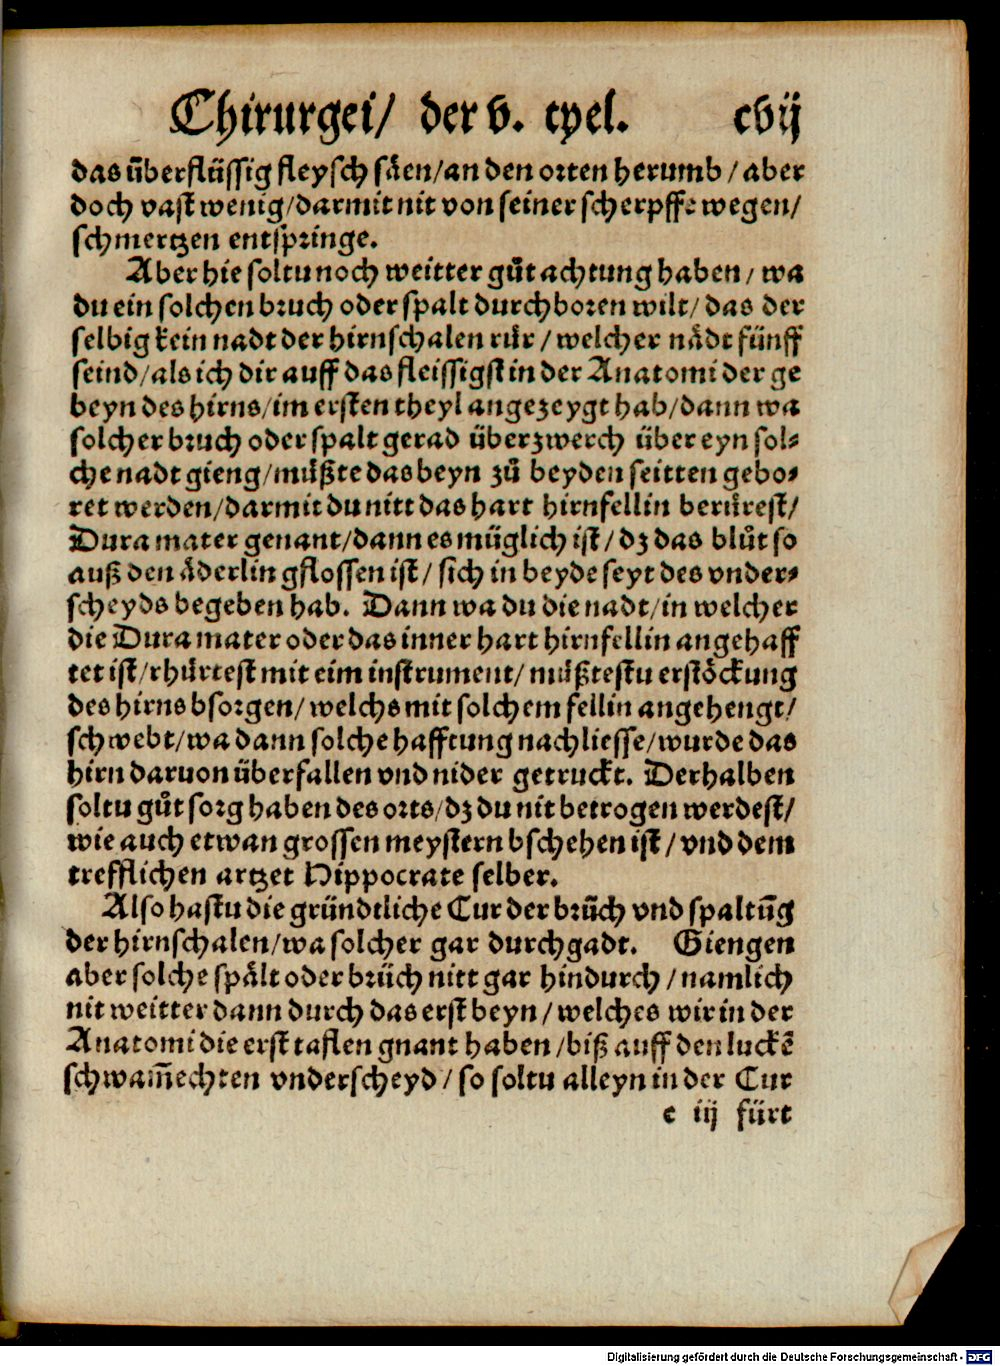 Chirurgei/ der v. teyl. cvij
das überflüssig fleysch säen/an den orten herumb/aber
doch vast wenig/darmit nit von seiner scherpffe wegen/
schmertzen entspringe.
Aber hie soltu noch weitter gůt achtung haben/ wa
du ein solchen bruch oder spalt durchboren wilt/ das der
selbig kein nadt der hirnschalen růr/ welcher nådt fünff
seind/als ich dir auff das fleissigst in der Anatomi der ge
beyn des hirns/im ersten theyl angezeygt hab/dann wa
solcher bruch oder spalt gerad überzwerch über eyn sol⸗
che nadt gieng/můßte das beyn zů beyden seitten gebo⸗
ret werden/darmit du nitt das hart hirnfellin berůrest/
Dura mater genant/dann es müglich ist/ dz das blůt so
auß den åderlin gflossen ist/ sich in beyde seyt des vnder⸗
scheyds begeben hab. Dann wa du die nadt/in welcher
die Dura mater oder das inner hart hirnfellin angehaff
tet ist/rhůrtest mit eim instrument/ můßtestu erstöckung
des hirns bsorgen/ welchs mit solchem fellin angehengt/
schwebt/wa dann solche hafftung nachliesse/wurde das
hirn daruon überfallen vnd nider getruckt. Derhalben
soltu gůt sorg haben des orts/dz du nit betrogen werdest/
wie auch etwan grossen meystern bschehen ist/ vnd dem
trefflichen artzet Hippocrate selber.
Also hastu die gründtliche Cur der brüch vnd spaltūg
der hirnschalen/wa solcher gar durchgadt. Giengen
aber solche spält oder brüch nitt gar hindurch/ namlich
nit weitter dann durch das erst beyn/ welches wir in der
Anatomi die erst taflen gnant haben/biß auff den luckē
schwam̄echten vnderscheyd/ so soltu alleyn in der Cur
e iij fürt
Digitalisierung gefördert durch die Deutsche Forschungsgemeinschaft - DFG